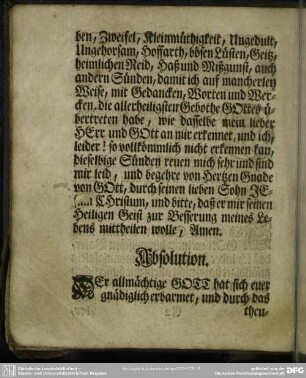 ben, Zweifel, Kleinmüthigkeit, Ungedult,
Ungehorsam, Hoffarth, bösen Lüsten, Geitz,
heimlichen Neid, Haß und Mißgunst, auch
andern Sünden, damit ich auf mancherley
Weise, mit Gedancken, Worten und Wer-
cken, die allerheiligsten Gebothe GOttes ü-
bertreten habe, wie dasselbe mein lieber
HErr und GOtt an mir erkennet, und ich,
leider! so vollkömmlich nicht erkennen kan,
dieselbige Sünden reuen mich sehr und sind
mir leid, und begehre von Hertzen Gnade
von GOtt, durch seinen lieben Sohn JE-
CHristum, und bitte, daß er mir seinen
Heiligen Geist zur Besserung meines Le-
bens mittheilen wolle, Amen.
Absolution.
DEr allmächtige GOTT hat sich euer
gnädiglich erbarmet, und durch das
theu-
Sächsische Landesbibliothek -
Staats- und Universitätsbibliothek Dresden
DFG